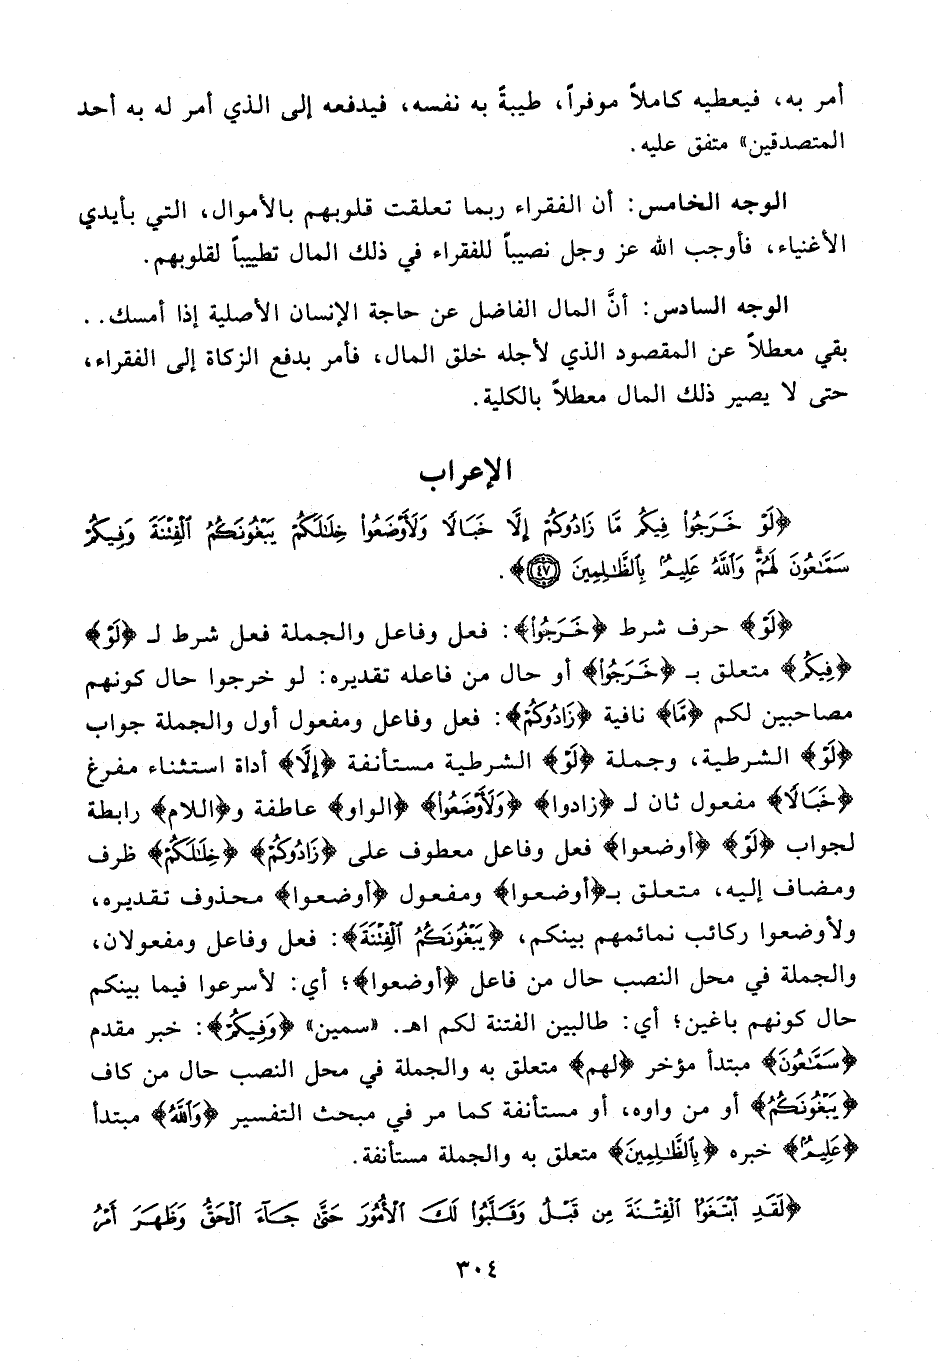 أمر به، فيعطيه كاملاً موفراً، طيبةً به نفسه، فيدفعه إلى الذي أمر له به أحد
المتصدقين» متفق عليه.
الوجه الخامس: أن الفقراء ربما تعلقت قلوبهم بالأموال، التي بأيدي
الأغنياء، فأوجب الله عز وجل نصيباً للفقراء في ذلك المال تطييباً لقلوبهم.
الوجه السادس: أنَّ المال الفاضل عن حاجة الإنسان الأصلية إذا أمسك..
بقي معطلاً عن المقصود الذي لأجله خلق المال، فأمر بدفع الزكاة إلى الفقراء،
حتى لا يصير ذلك المال معطلاً بالكلية.
الإعراب
﴿لَوْ خَرَجُوا۟ فِيكُم مَّا زَادُوكُمْ إِلَّا خَبَالًا وَلَأَوْضَعُوا۟ خِلَـٰلَكُمْ يَبْغُونَكُمُ ٱلْفِتْنَةَ وَفِيكُمْ
سَمَّـٰعُونَ لَهُمْ ۗ وَٱللَّهُ عَلِيمٌۢ بِٱلظَّـٰلِمِينَ ٤٧﴾.
﴿لَوْ﴾ حرف شرط ﴿خَرَجُوا۟﴾: فعل وفاعل والجملة فعل شرط لـ ﴿لَوْ﴾
﴿فِيكُم﴾ متعلق بـ ﴿خَرَجُوا۟﴾ أو حال من فاعله تقديره: لو خرجوا حال كونهم
مصاحبين لكم ﴿مَّا﴾ نافية ﴿زَادُوكُمْ﴾: فعل وفاعل ومفعول أول والجملة جواب
﴿لَوْ﴾ الشرطية، وجملة ﴿لَوْ﴾ الشرطية مستأنفة ﴿إِلَّا﴾ أداة استثناء مفرغ
﴿خَبَالًا﴾ مفعول ثان لـ ﴿زادوا﴾ ﴿وَلَأَوْضَعُوا۟﴾ ﴿الواو﴾ عاطفة و﴿اللام﴾ رابطة
لجواب ﴿لَوْ﴾ ﴿أوضعوا﴾ فعل وفاعل معطوف على ﴿زَادُوكُمْ﴾ ﴿خِلَـٰلَكُمْ﴾ ظرف
ومضاف إليه، متعلق بـ﴿أوضعوا﴾ ومفعول ﴿أوضعوا﴾ محذوف تقديره،
ولأوضعوا ركائب نمائمهم بينكم، ﴿يَبْغُونَكُمُ ٱلْفِتْنَةَ﴾: فعل وفاعل ومفعولان،
والجملة في محل النصب حال من فاعل ﴿أوضعوا﴾؛ أي: لأسرعوا فيما بينكم
حال كونهم باغين؛ أي: طالبين الفتنة لكم اهـ. «سمين» ﴿وَفِيكُمْ﴾: خبر مقدم
﴿سَمَّـٰعُونَ﴾ مبتدأ مؤخر ﴿لهم﴾ متعلق به والجملة في محل النصب حال من كاف
﴿يَبْغُونَكُمُ﴾ أو من واوه، أو مستأنفة كما مر في مبحث التفسير ﴿وَٱللَّهُ﴾ مبتدأ
﴿عَلِيمٌۢ﴾ خبره ﴿بِٱلظَّـٰلِمِينَ﴾ متعلق به والجملة مستأنفة.
﴿لَقَدِ ٱبْتَغَوُا۟ ٱلْفِتْنَةَ مِن قَبْلُ وَقَلَّبُوا۟ لَكَ ٱلْأُمُورَ حَتَّىٰ جَآءَ ٱلْحَقُّ وَظَهَرَ أَمْرُ
٣٠٤